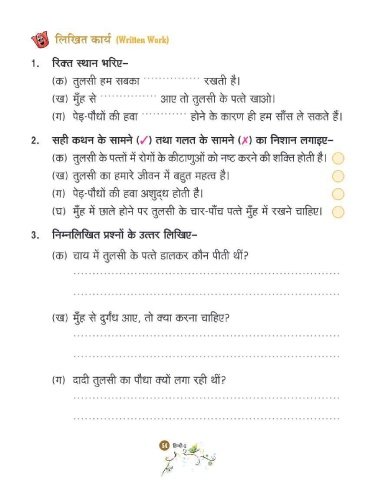 लिखित कार्य (Written Work)
1. रिक्त स्थान भरिए–
(क) तुलसी हम सबका ............... रखती है।
(ख) मुँह से ............... आए तो तुलसी के पत्ते खाओ।
(ग) पेड़-पौधों की हवा ............... होने के कारण ही हम साँस ले सकते हैं।
2. सही कथन के सामने (✓) तथा गलत के सामने (✗) का निशान लगाइए–
(क) तुलसी के पत्तों में रोगों के कीटाणुओं को नष्ट करने की शक्ति होती है।
(ख) तुलसी का हमारे जीवन में बहुत महत्व है।
(ग) पेड़-पौधों की हवा अशुद्ध होती है।
(घ) मुँह में छाले होने पर तुलसी के चार-पाँच पत्ते मुँह में रखने चाहिए।
3. निम्नलिखित प्रश्नों के उत्तर लिखिए–
(क) चाय में तुलसी के पत्ते डालकर कौन पीती थीं?
(ख) मुँह से दुर्गंध आए, तो क्या करना चाहिए?
(ग) दादी तुलसी का पौधा क्यों लगा रही थीं?